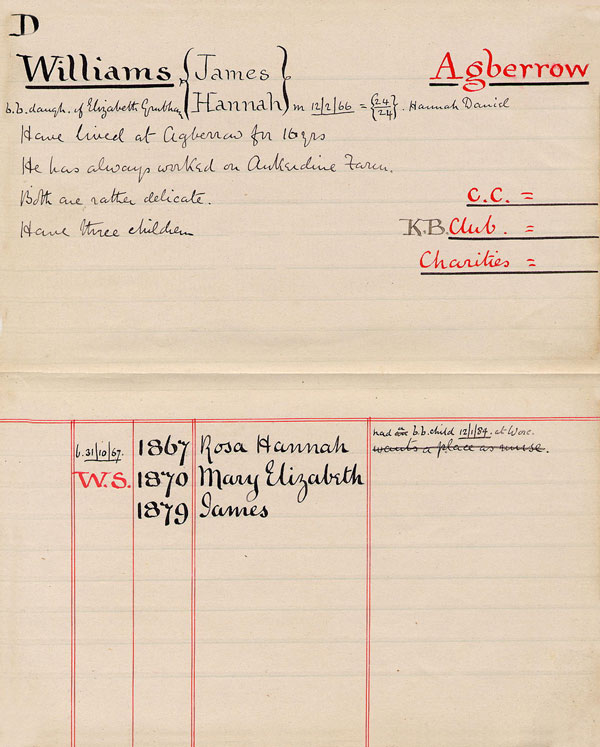 D
Williams { James } Agberrow
b.b. daugh. of Elizabeth Grubhay { Hannah } m 12/2/66 = {24/24}. Hannah Daniel
Have lived at Agberrow for 16 yrs
He has always worked on Ankerdine Farm.
Both are rather delicate.
C.C. =
Have three children
K.B. Club. =
Charities =
had one b.b. child 12/1/84. at Worc.
b. 31/10/67. 1867 Rosa Hannah wants a place as nurse.
W.S. 1870 Mary Elizabeth
1879 James